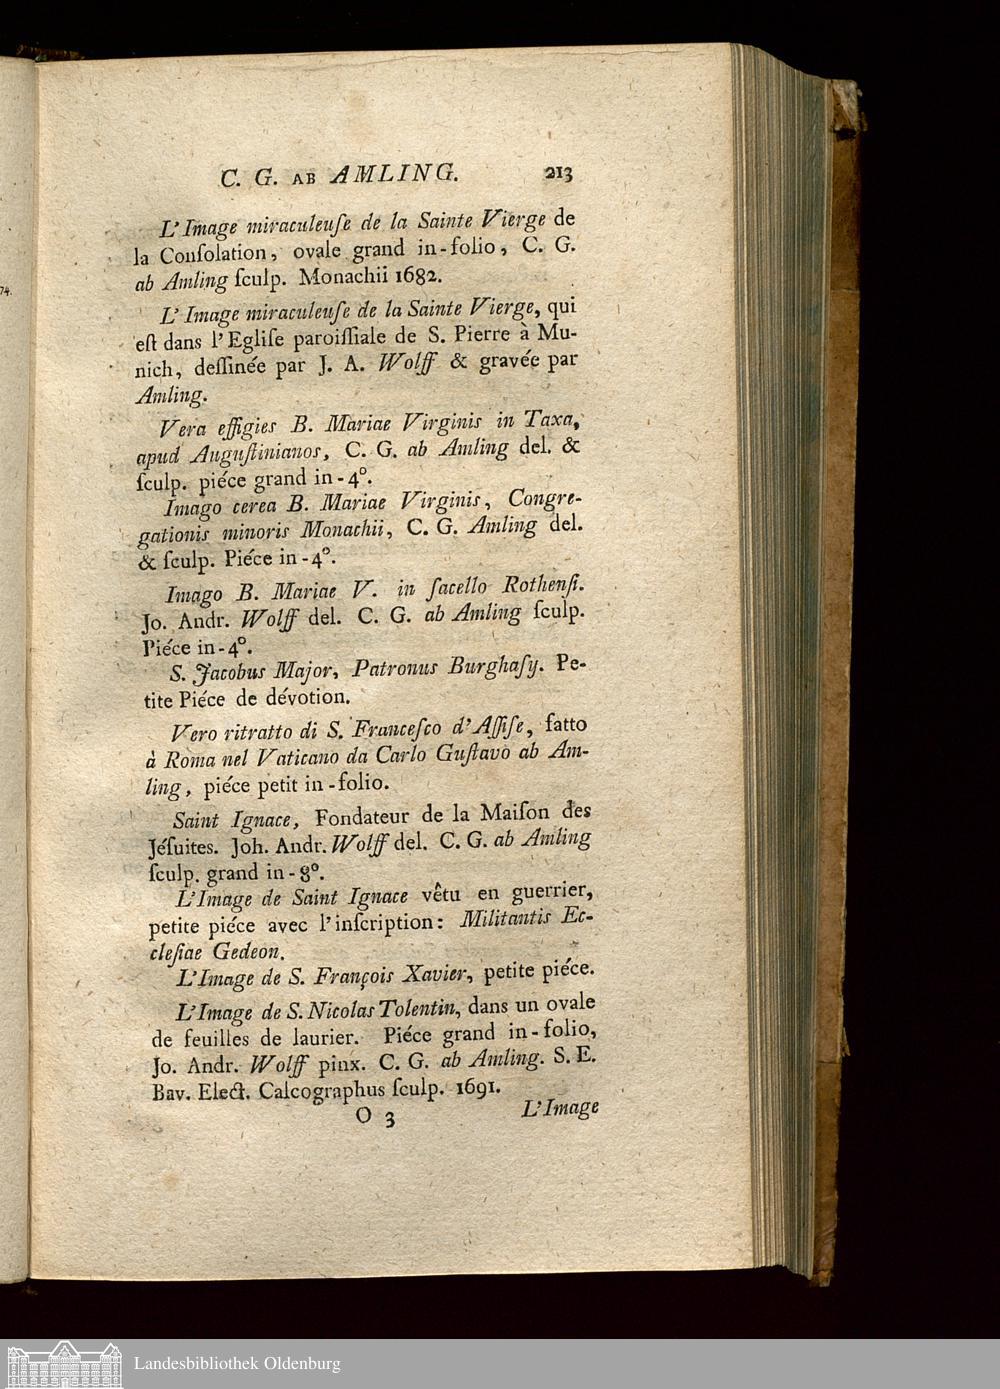 C. G. AB AMLING. 213
L'Image miraculeuſe de la Sainte Vierge de
la Conſolation, ovale grand in-folio, C. G.
ab Amling ſculp. Monachii 1682.
L'Image miraculeuſe de la Sainte Vierge, qui
eſt dans l'Egliſe paroiſſiale de S. Pierre à Mu-
nich, deſſinée par J. A. Wolff & gravée par
Amling.
Vera effigies B. Mariae Virginis in Taxa,
apud Auguſtinianos, C. G. ab Amling del. &
ſculp. piéce grand in-4°.
Imago cerea B. Mariae Virginis, Congre-
gationis minoris Monachii, C. G. Amling del.
& ſculp. Piéce in-4°.
Imago B. Mariae V. in ſacello Rothenſi.
Jo. Andr. Wolff del. C. G. ab Amling ſculp.
Piéce in-4°.
S. Jacobus Major, Patronus Burghaſy. Pe-
tite Piéce de dévotion.
Vero ritratto di S. Franceſco d'Aſſiſe, fatto
à Roma nel Vaticano da Carlo Guſtavo ab Am-
ling, piéce petit in-folio.
Saint Ignace, Fondateur de la Maiſon des
Jéſuites. Joh. Andr. Wolff del. C. G. ab Amling
ſculp. grand in-8°.
L'Image de Saint Ignace vêtu en guerrier,
petite piéce avec l'inſcription: Militantis Ec-
cleſiae Gedeon.
L'Image de S. François Xavier, petite piéce.
L'Image de S. Nicolas Tolentin, dans un ovale
de feuilles de laurier. Piéce grand in-folio,
Jo. Andr. Wolff pinx. C. G. ab Amling. S. E.
Bav. Elect. Calcographus ſculp. 1691.
O 3 L'Image
74.
Landesbibliothek Oldenburg